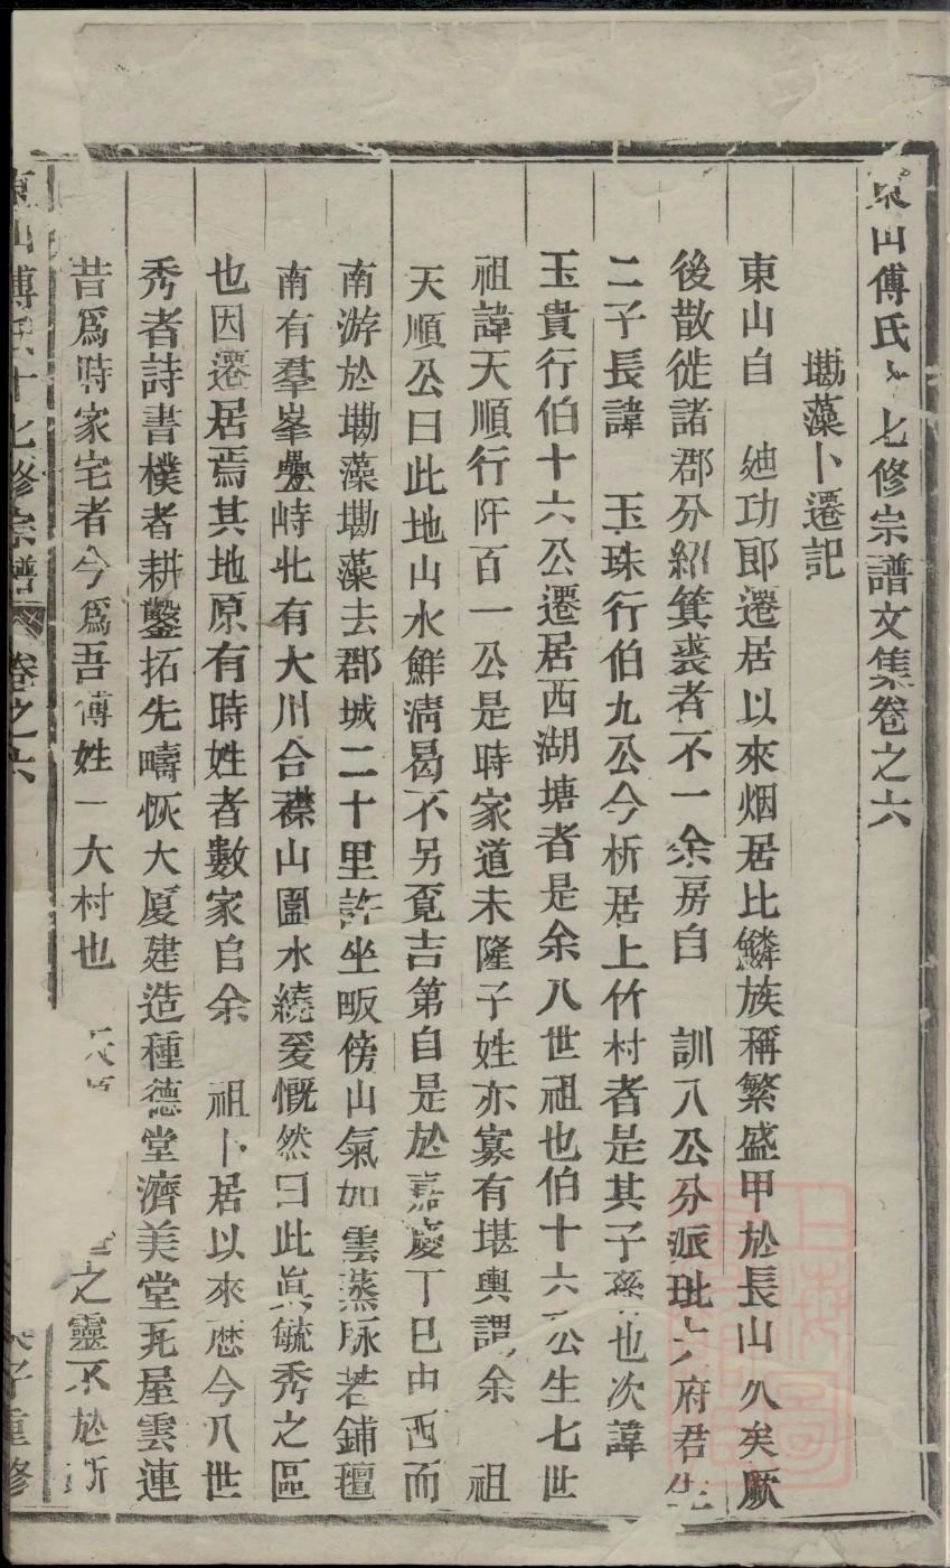 東山傅氏十七修宗譜文集卷之六
墈藻卜遷記
東山自 迪功郎遷居以來烟居比鱗族稱繁盛甲於長山久矣厥
後散徙諸郡分紹箕裘者不一余房自 訓八公分派玭六府君生
二子長諱 玉珠行伯九公今析居上竹村者是其子孫也次諱
玉貴行伯十六公遷居西湖塘者是余八世祖也伯十六公生七世
祖諱天順行阡百一公是時家道未隆子姓亦寡有堪輿謂余 祖
天順公曰此地山水鮮淸曷不另覓吉第自是於嘉慶丁巳由西而
南游於墈藻墈藻去郡城二十里許坐畈傍山氣如雲蒸脉若鋪壇
南有羣峯疊峙北有大川合襟山圍水繞爰慨然曰此眞毓秀之區
也因遷居焉其地原有時姓者數家自余 祖卜居以來歷今八世
秀者詩書樸者耕鑿拓先疇恢大厦建造種德堂濟美堂瓦屋雲連
昔爲時家宅者今爲吾傅姓一大村也
之靈不於斯
東山傅氏十七修宗譜 卷之六
重修